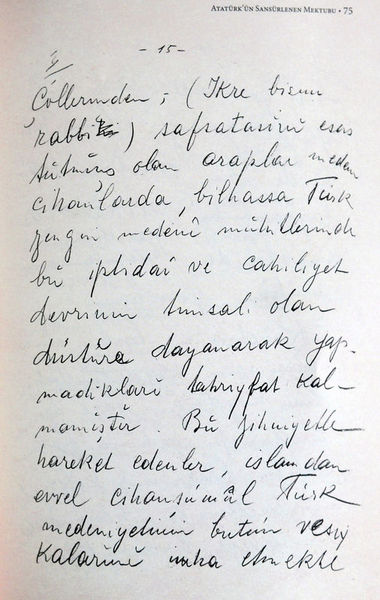 ATATÜRK'ÜN SANSÜRLENEN MEKTUBU • 75
- 15 -
Çöllerinden; (İkre bismi
rabbi ) safsatasını esas
tutmuş olan araplar meden
cihanlarda, bilhassa Türk
zengin medenî muhitlerinde
bu iptidaî ve cahiliyet
devrinin timsali olan
düstûre dayanarak yap-
madıkları tahrifat kal-
mamıştır. Bu zihniyetle
hareket edenler, islamdan
evvel cihanşümül Türk
medeniyetinin bütün vesi-
kalarını imha etmekte